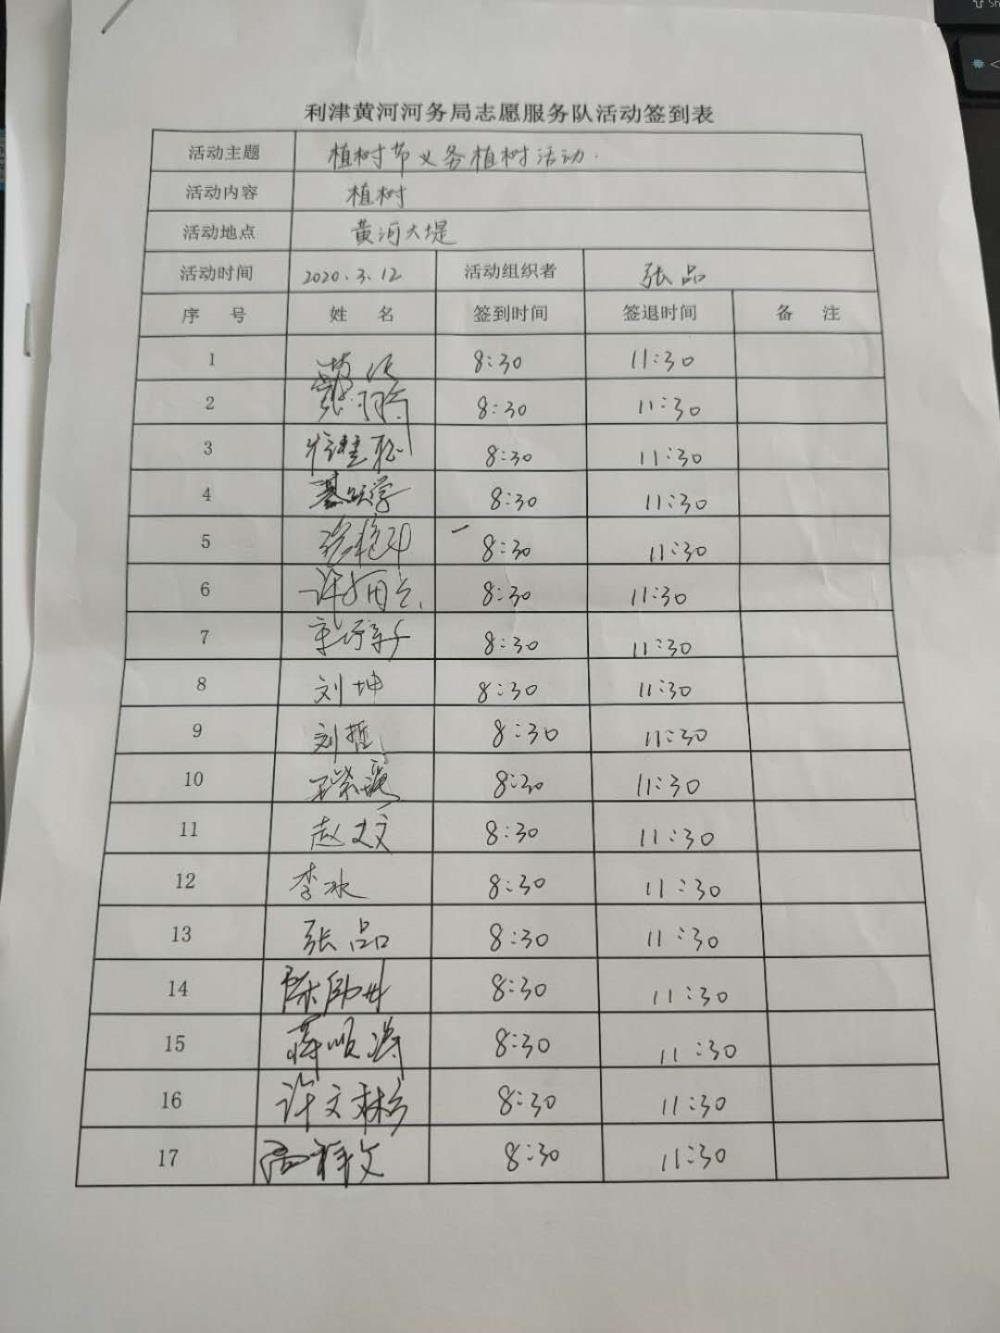 利津黄河河务局志愿服务队活动签到表
活动主题 植树节义务植树活动.
活动内容 植树
活动地点 黄河大堤
活动时间 2020.3.12 活动组织者 张品
序 号 姓 名 签到时间 签退时间 备 注
1 8:30 11:30
2 8:30 11:30
3 8:30 11:30
4 8:30 11:30
5 8:30 11:30
6 8:30 11:30
7 8:30 11:30
8 刘坤 8:30 11:30
9 刘哲 8:30 11:30
10 8:30 11:30
11 赵文 8:30 11:30
12 李冰 8:30 11:30
13 张品 8:30 11:30
14 8:30 11:30
15 蒋顺涛 8:30 11:30
16 许文彬 8:30 11:30
17 8:30 11:30